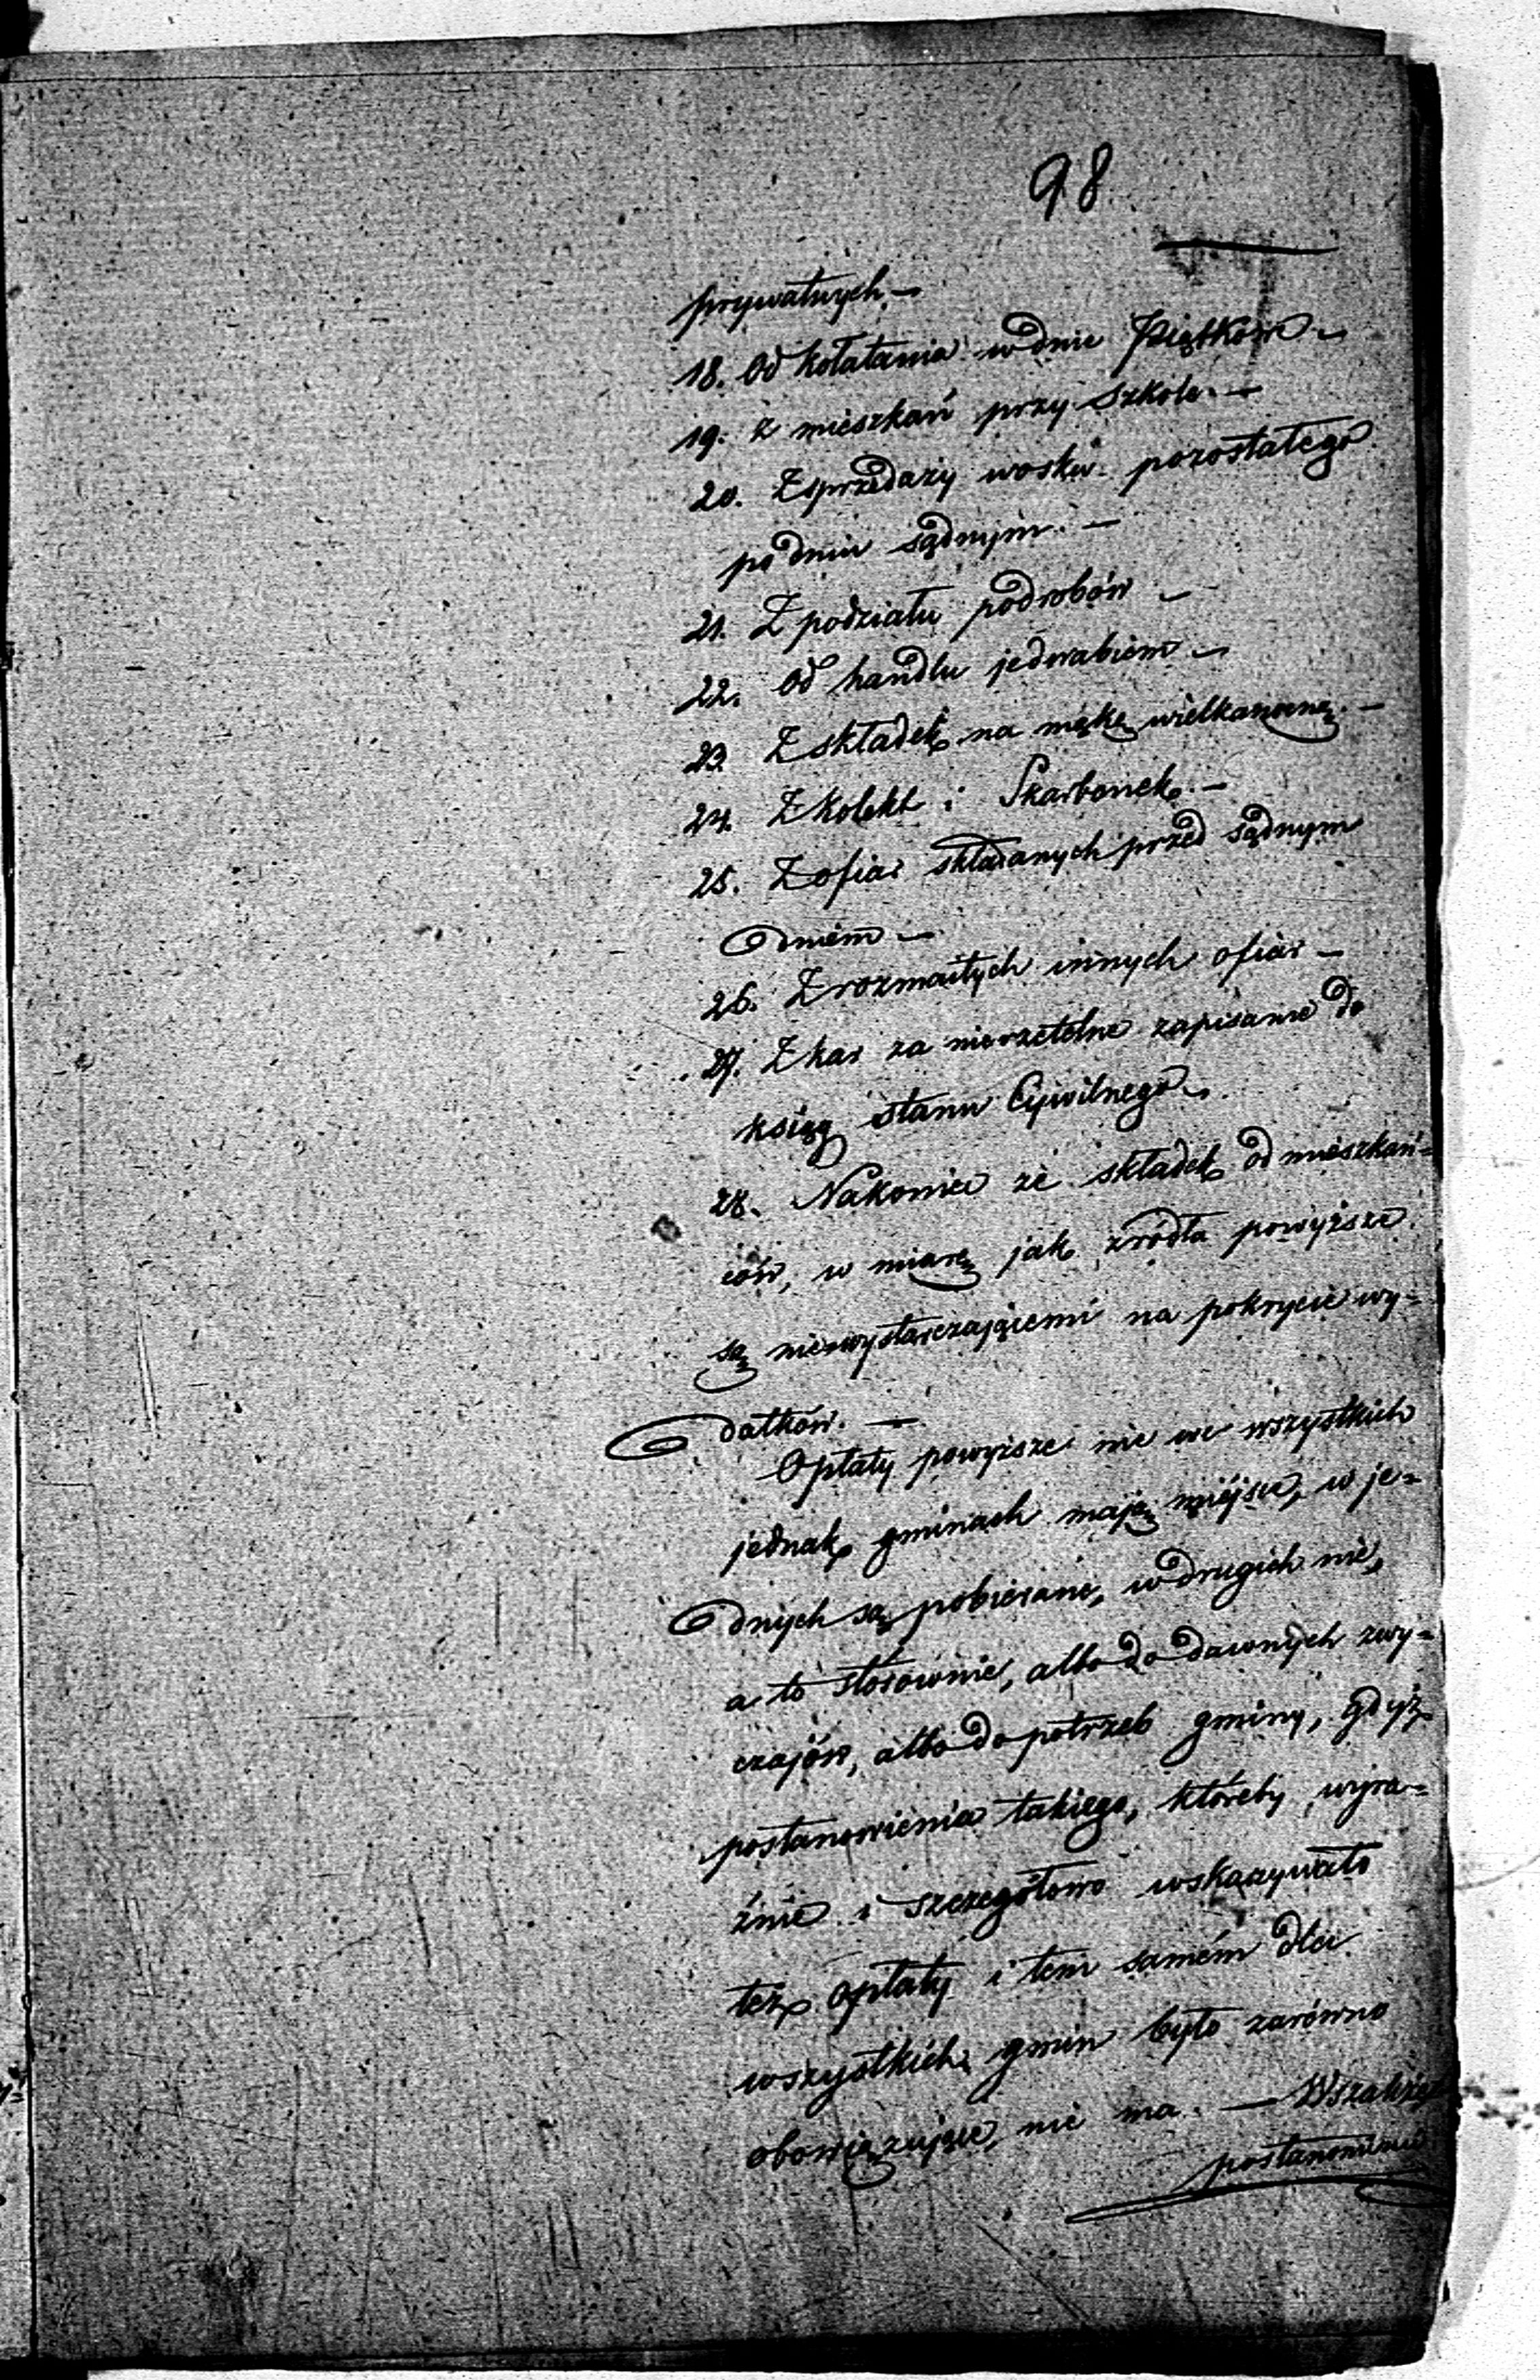 98
prywatnych. —
18. Od kołatania w dnie Piątków —
19. Z mieszkań przy szkole. —
20. Z sprzedaży wosku pozostałego
po dniu sądnym. —
21. Z podziału podrobów —
22. Od handlu jedwabiem —
23. Z składek na mąkę wielkanocną. —
24. Z kolekt i Skarbonek. —
25. Z ofiar składanych przed sądnym
dniem —
26. Z rozmaitych innych ofiar —
27. Z kar za nierzetelne zapisanie do
ksiąg stanu Cywilnego —
28. Nakoniec ze składek od mieszkań=
ców, w miarę jak źródła powyższe
są niewystarczającemi na pokrycie wy=
datków. —
Opłaty powyższe nie we wszystkich
jednak gminach mają miejsce, w je=
dnych są pobierane, w drugich nie,
a to stosownie, albo do dawnych zwy=
czajów, albo do potrzeb gminy, gdyż
postanowienia takiego, któreby wyra=
źnie i szczegółowo wskazywało
też opłaty i tem samém dla
wszystkich gmin było zarówno
obowiązujące, nie ma. — Wszakże
postanowienie